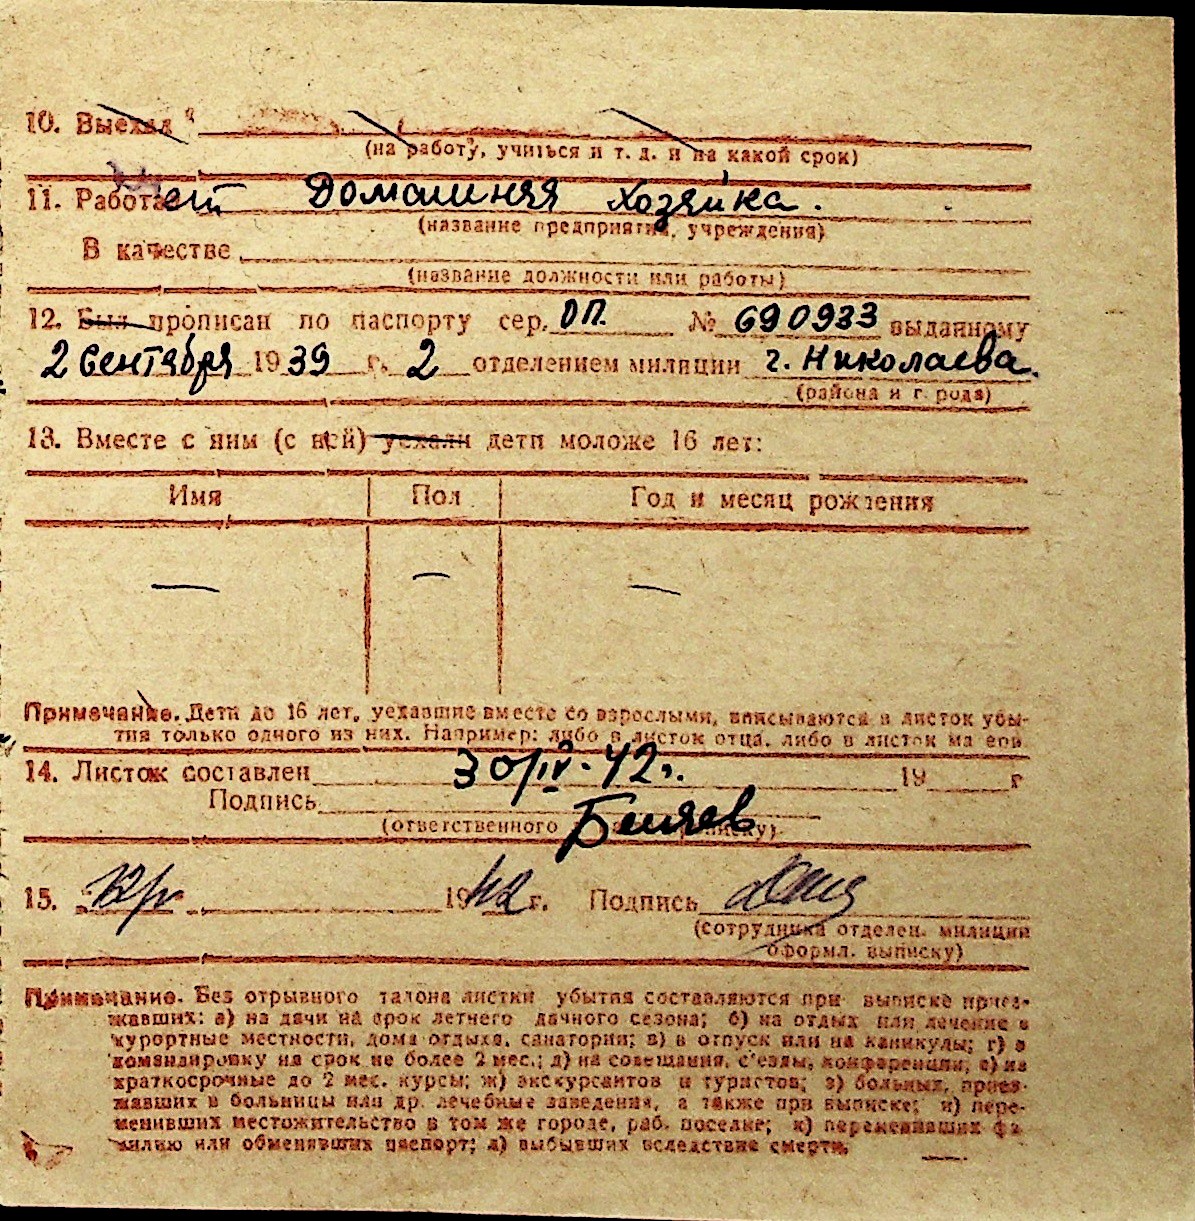 10. Выехал "
(на работу, учиться и т. д. и на какой срок)
11. Работает Домашняя хозяйка.
(название предприятия, учреждения)
В качестве
(название должности или работы)
12. Был прописан по паспорту сер. ОП. № 690933 выданному
2 Сентября 1939 г. 2 отделением милиции г. Николаева.
(района и города)
13. Вместе с ним (с ней) уехали дети моложе 16 лет:
Имя Пол Год и месяц рождения
— — —
Примечание. Дети до 16 лет, уехавшие вместе со взрослыми, вписываются в листок убы-
тия только одного из них. Например: либо в листок отца, либо в листок матери
14. Листок составлен 30/IV-42г. 19 г
Подпись
(ответственного
15. 1942 г. Подпись
(сотрудника отделен. милиции
оформл. выписку)
Примечание. Без отрывного талона листки убытия составляются при выписке приез-
жавших: а) на дачи на срок летнего дачного сезона; б) на отдых или лечение в
курортные местности, дома отдыха, санатории; в) в отпуск или на каникулы; г) в
командировку на срок не более 2 мес.; д) на совещания, с'езды, конференции; е) на
краткосрочные до 2 мес. курсы; ж) экскурсантов и туристов; з) больных, приез-
жавших в больницы или др. лечебные заведения, а также при выписке; и) пере-
менивших местожительство в том же городе, раб. поселке; к) переменивших фа-
милию или обменявших паспорт; л) выбывших вследствие смерти.